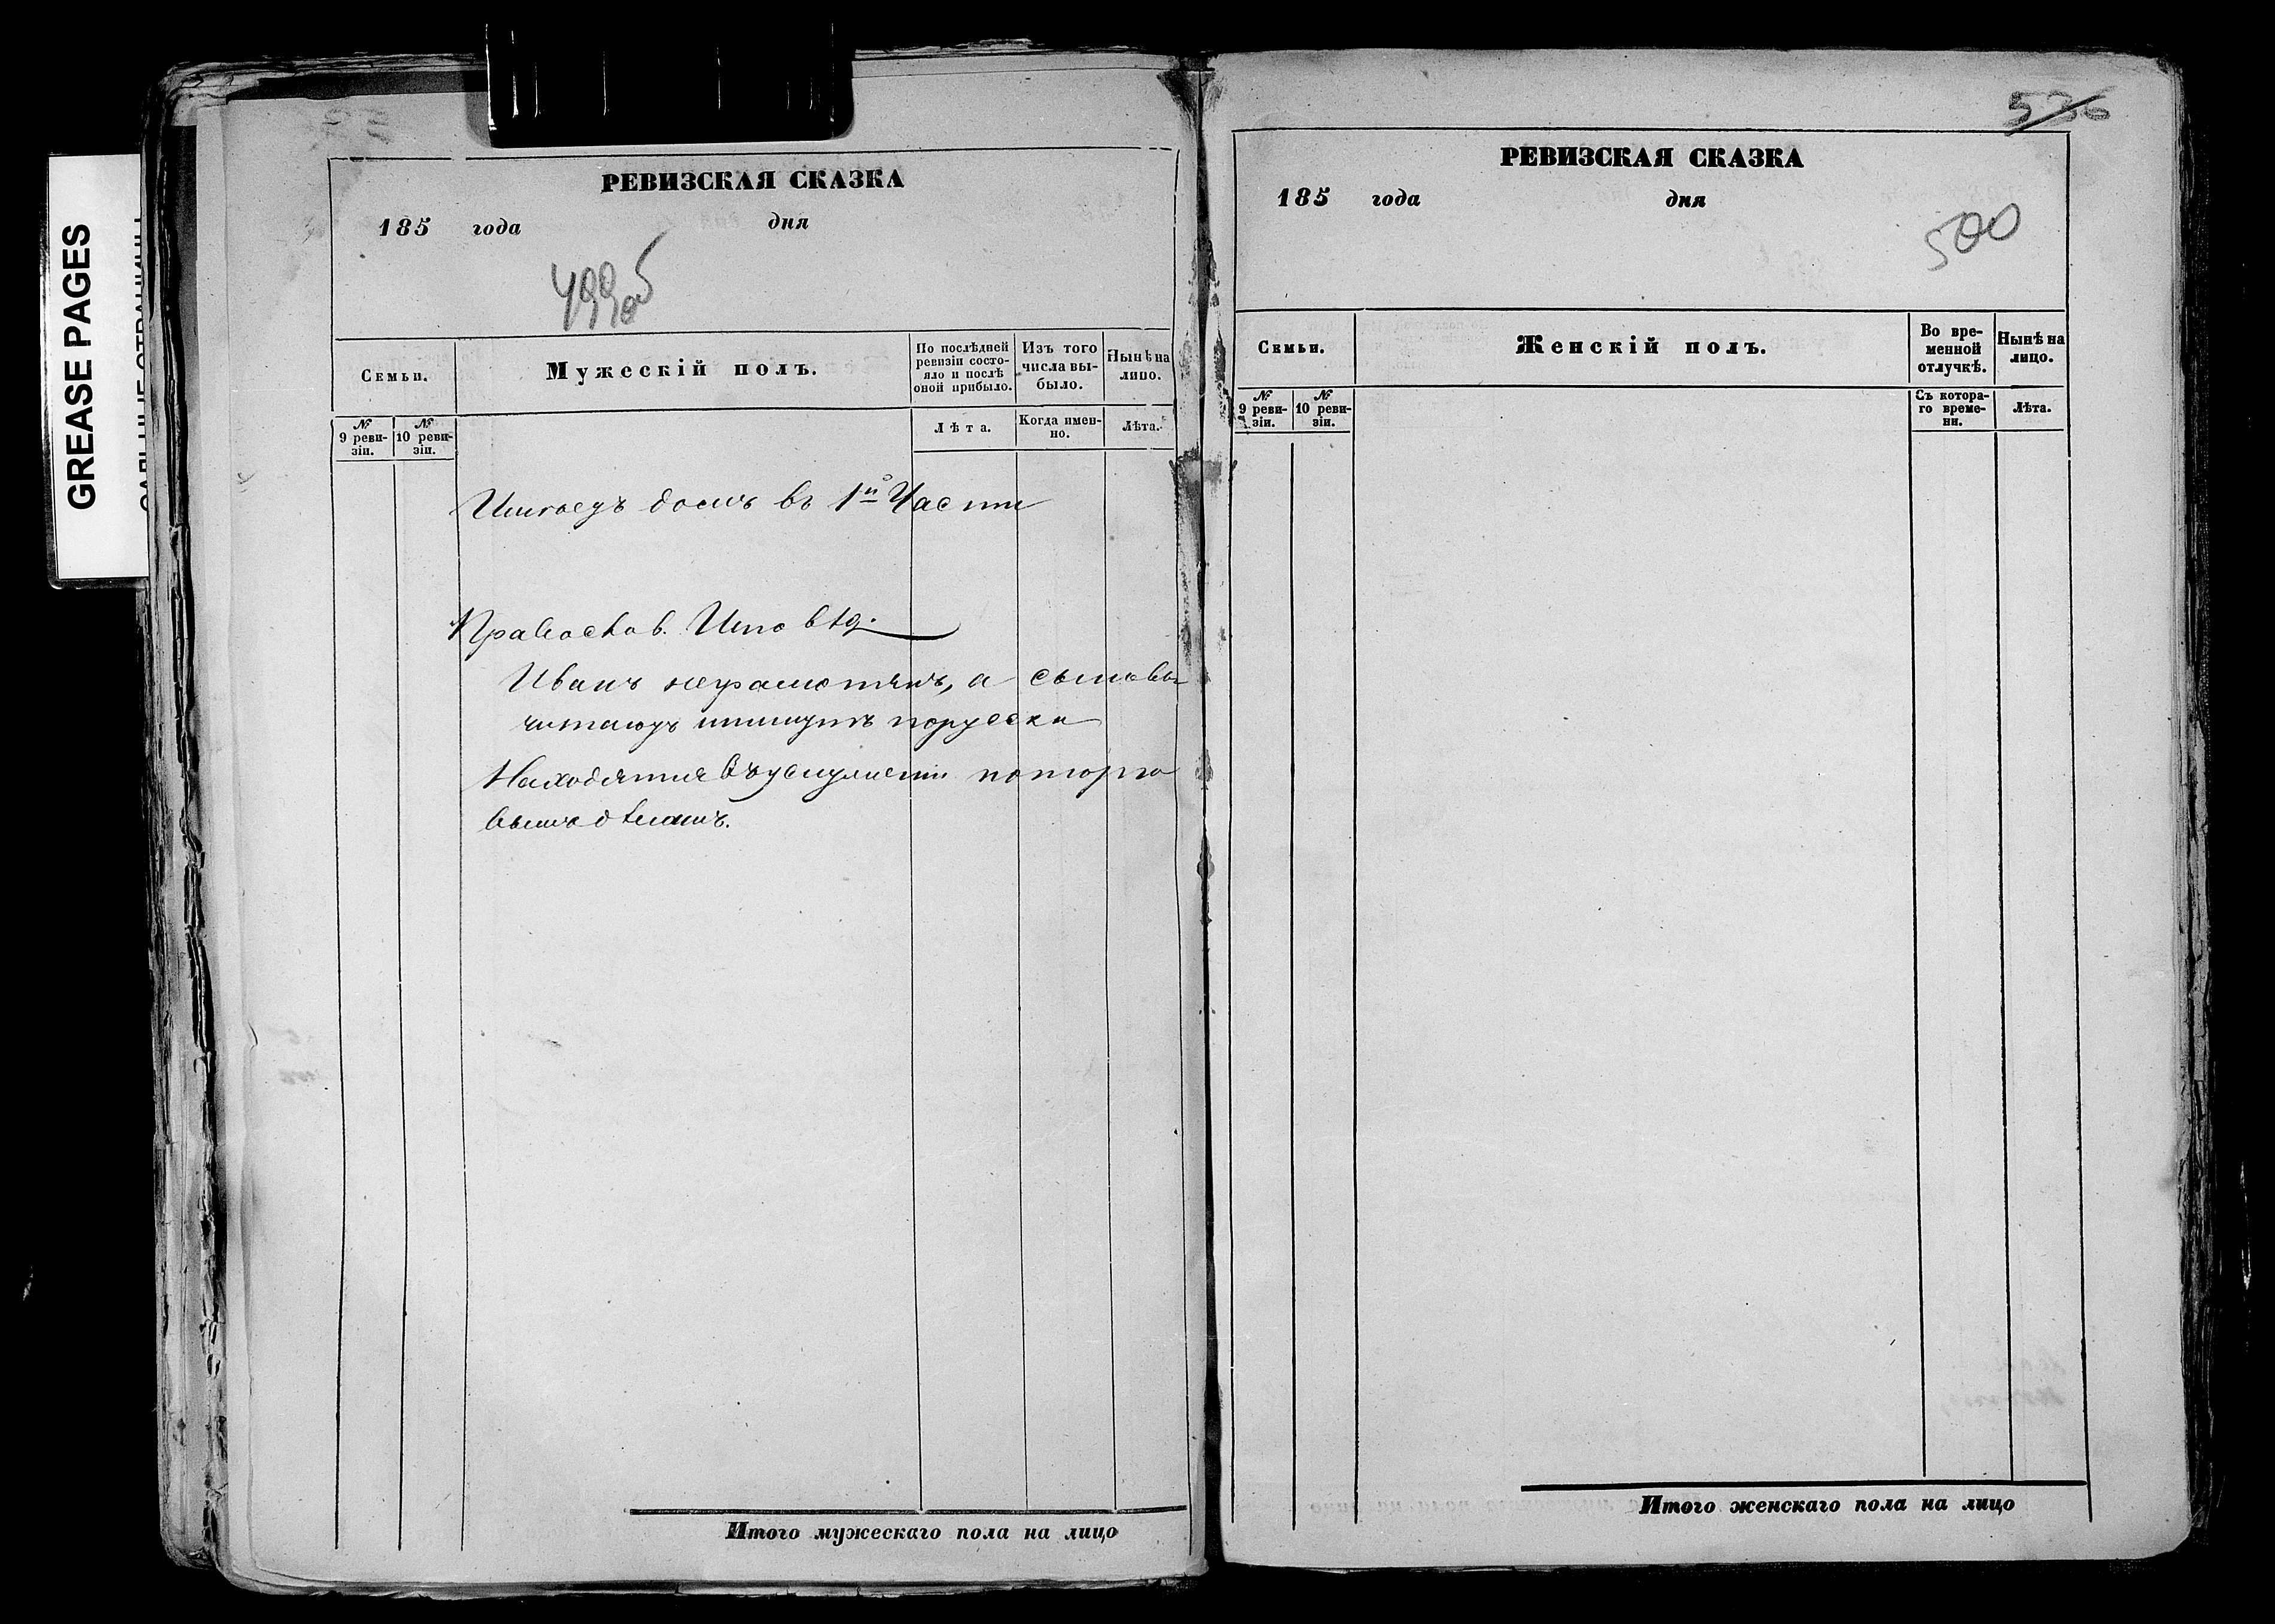 GREASE PAGES
РЕВИЗСКАЯ СКАЗКА
185 года дня
499об
Семьи.
Мужескій полъ.
По послѣдней ревизіи состояло и послѣ оной прибыло.
Изъ того числа выбыло.
Нынѣ на лицо.
№ 9 ревизіи.
№ 10 ревизіи.
Лѣта.
Когда именно.
Лѣта.
Имѣютъ домъ въ 1й Части
Православ. Исповѣд.
Иванъ неграмотенъ, а сыновья
читаютъ ипишутъ порусски
Находятся въуслуженіи поторго
вымъ дѣламъ.
Итого мужескаго пола на лицо
536
РЕВИЗСКАЯ СКАЗКА
185 года дня
500
Семьи.
Женскій полъ.
Во временной отлучкѣ.
Нынѣ на лицо.
№ 9 ревизіи.
№ 10 ревизіи.
Съ котораго времени.
Лѣта.
Итого женскаго пола на лицо